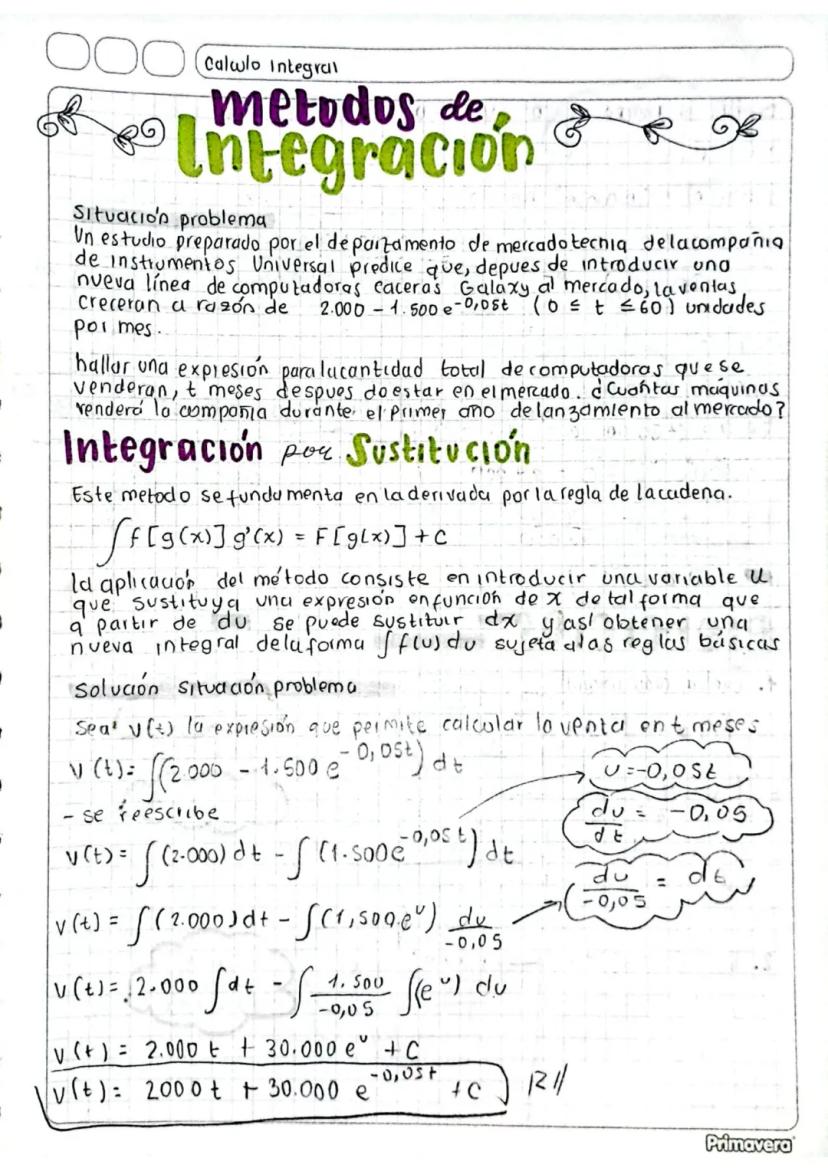 Calculo Integral
metodos de
Integración
Situación problema
Un estudio preparado por el departamento de mercadotecnia delacompañia
de instrumentos Universal predice que, depues de introducir una
nueva línea de computadoras caceras Galaxy al mercado, la ventas
creceran a razón de 2.000 - 1.500 e^-0,05t (0 ≤ t ≤ 60) unidades
por mes.
hallar una expresión para la cantidad total de computadoras que se
venderan, t meses despues de estar en el mercado. ¿Cuantas máquinas
venderá la compañia durante el primer año de lanzamiento al mercado?
Integración por Sustitución
Este metodo se fundamenta en la derivada por la regla de la cadena.
∫ f[g(x)] g'(x) = F[g(x)] + C
la aplicación del método consiste en introducir una variable u
que sustituya una expresión en función de x de tal forma que
a partir de du se puede sustituir dx y así obtener una
nueva integral de la forma ∫ f(u) du sujeta a las reglas básicas
Solución situación problema
Sea v(t) la expresión que permite calcular la venta en t meses
v(t) = ∫(2.000 - 1.500 e^-0,05t) dt
u = -0,05t
- se reescribe
du/dt = -0,05
v(t) = ∫(2.000) dt - ∫(1.500e^-0,05t) dt
du/-0,05 = dt
v(t) = ∫(2.000) dt - ∫(1,500.e^u) du/-0,05
v(t) = 2.000 ∫dt - ∫ 1.500/-0,05 ∫(e^u) du
v(t) = 2.000 t + 30.000 e^u + C
v(t) = 2000 t + 30.000 e^-0,05t + C R//
Primavera